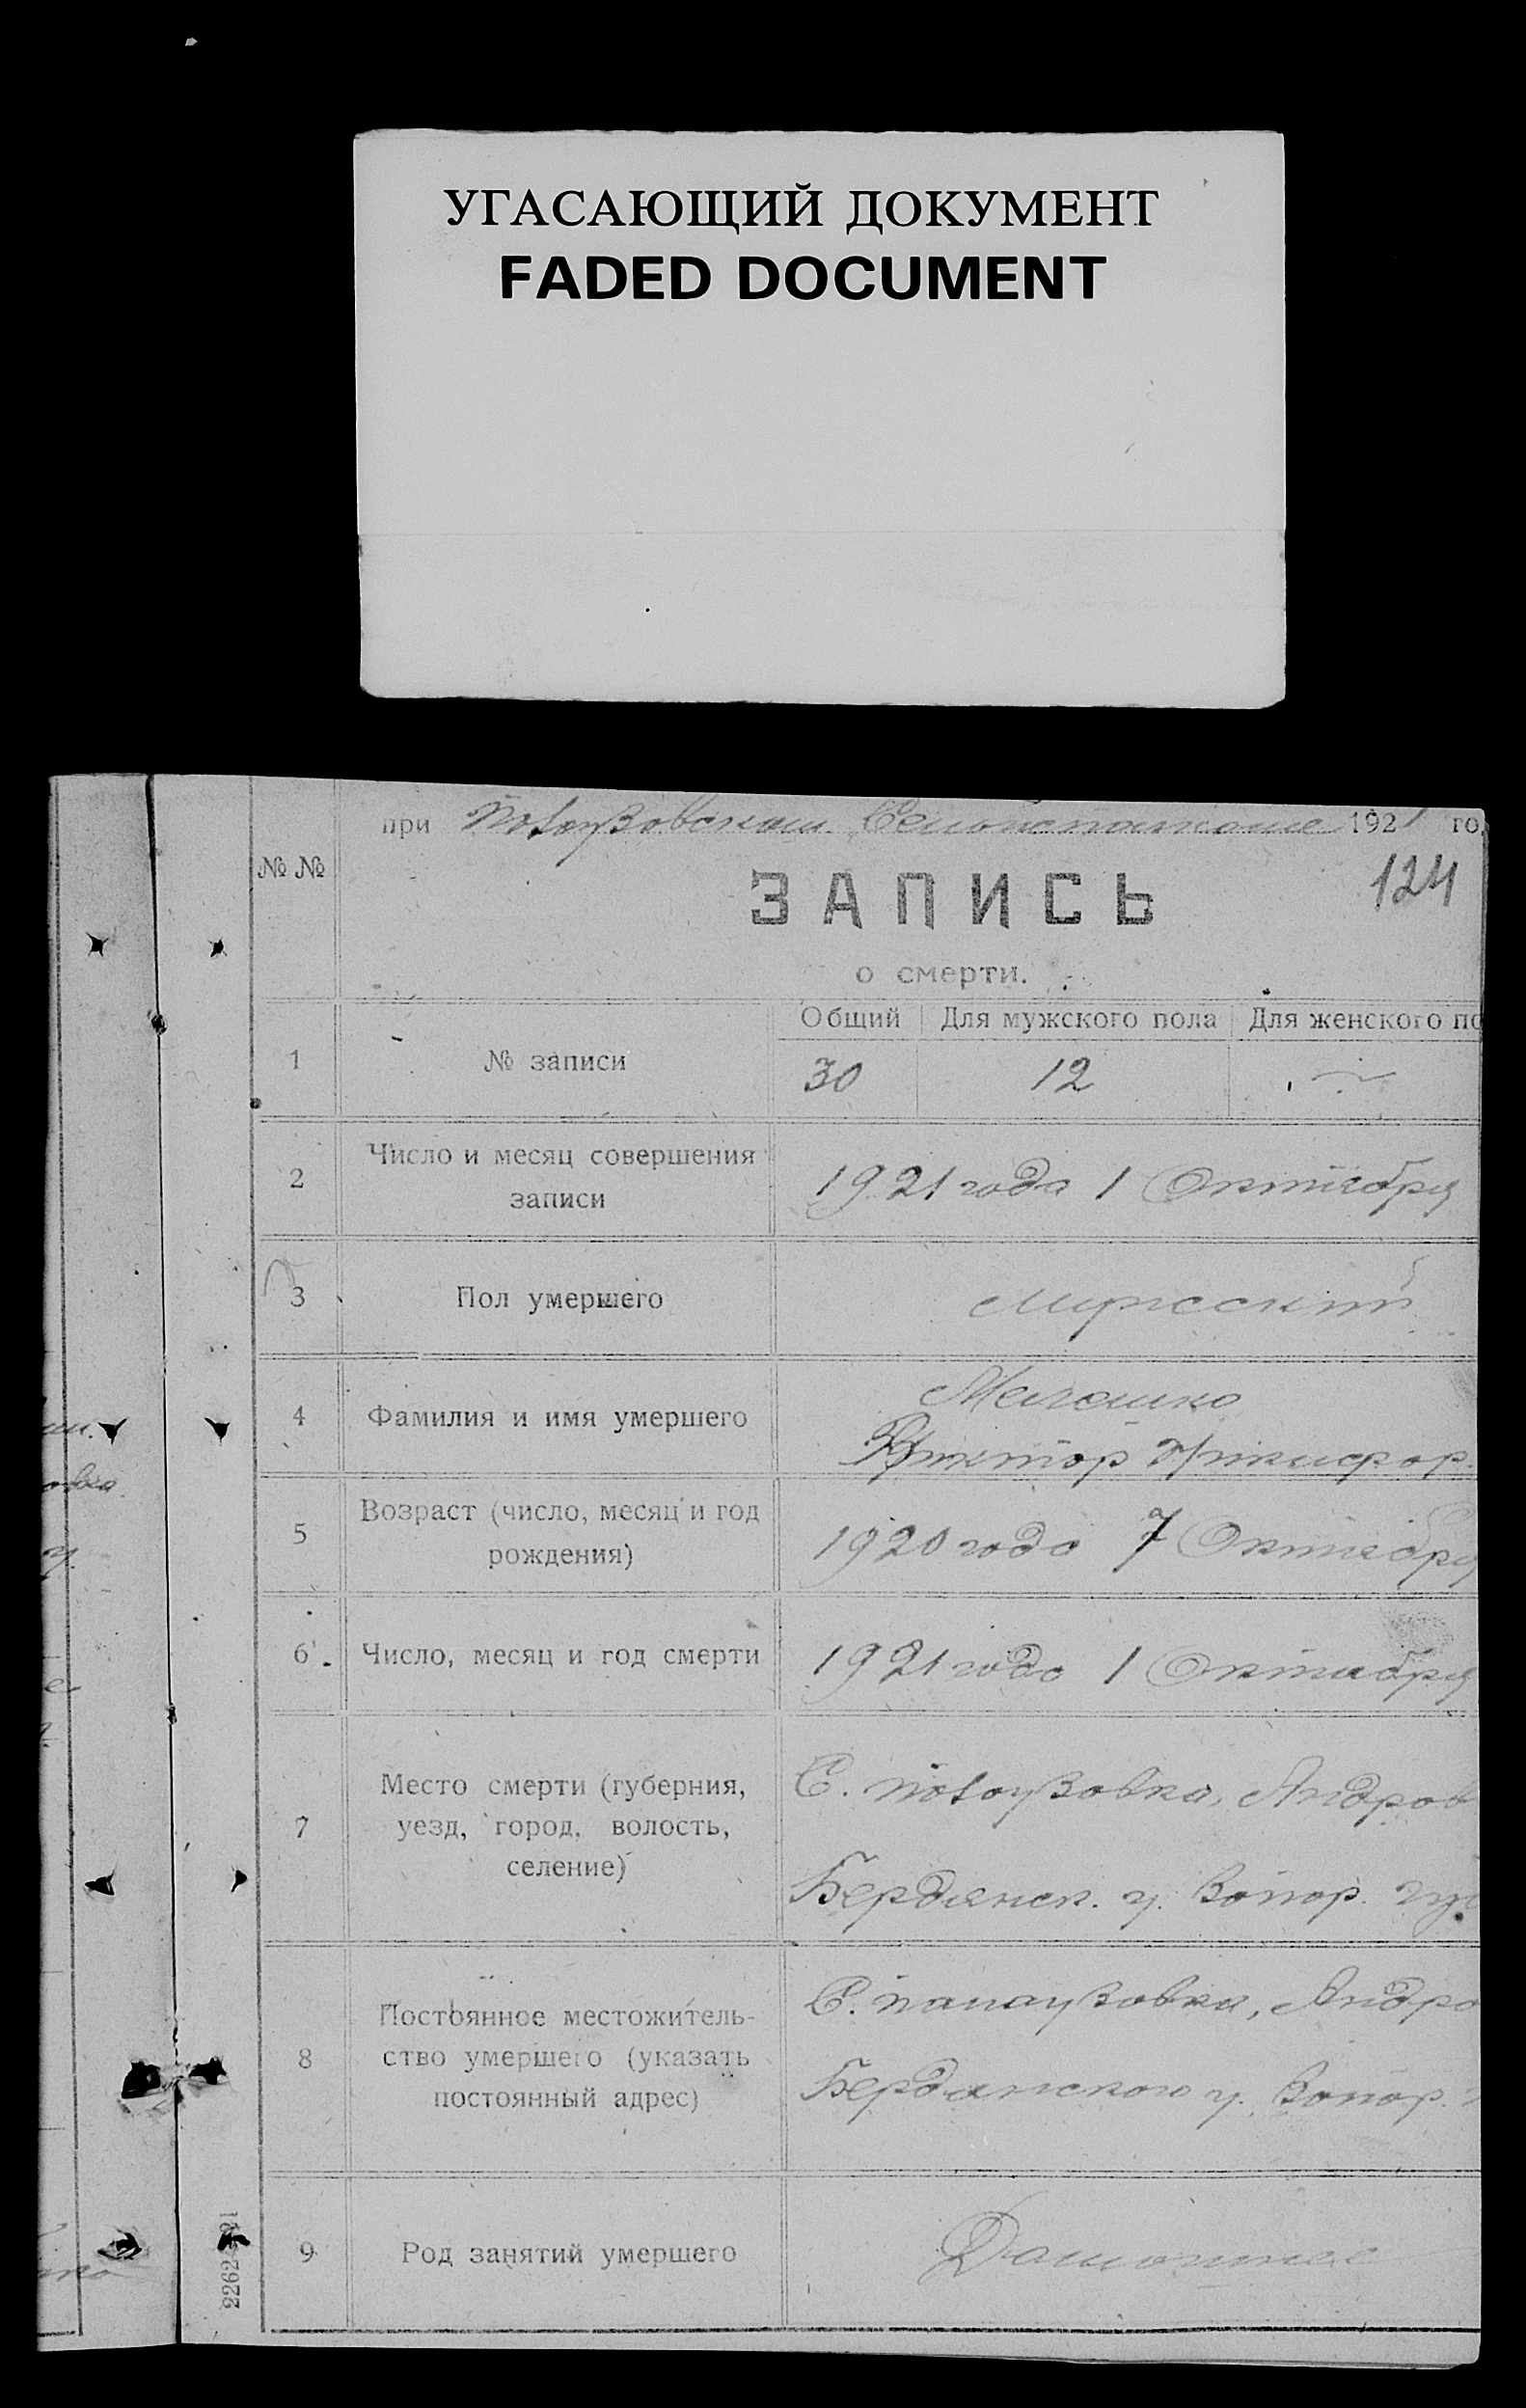 УГАСАЮЩИЙ ДОКУМЕНТ
FADED DOCUMENT
при 1921 го
№ №
124
ЗАПИСЬ
о смерти.
Общий Для мужского пола Для женского по
1 № записи 30 12
2 Число и месяц совершения
записи
1921 года 1 Октября
3 Пол умершего мужеский
4 Фамилия и имя умершего
Виктор Никифор.
5 Возраст (число, месяц и год
рождения)
1920 года 7 Октября
6 Число, месяц и год смерти 1921 года 1 Октября
7 Место смерти (губерния,
уезд, город, волость,
селение)
С. Андров
Бердянск. у. Запор. гу
8 Постоянное местожитель-
ство умершего (указать
постоянный адрес)
С. Андро
Бердянского у. Запор.
9 Род занятий умершего